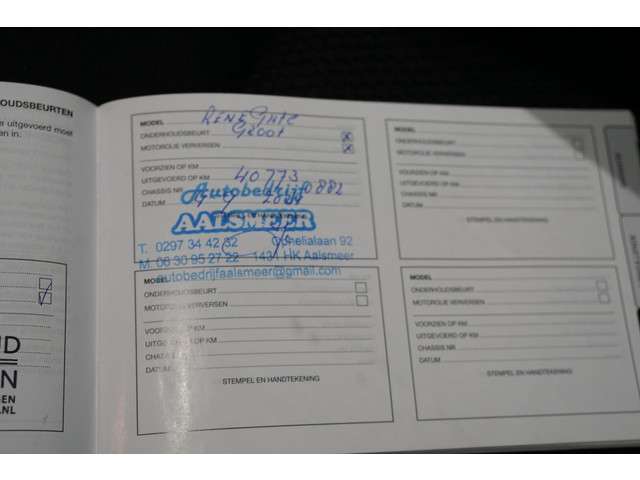 OUDSBEURTEN
uitgevoerd moet
en in:
D
N
GEN
NL
MODEL RENEGATE
ONDERHOUDSBEURT GROOT
MOTOROLIE VERVERSEN
VOORZIEN OP KM
UITGEVOERD OP KM 40773
CHASSIS NR 0882
DATUM
Autobedrijf
AALSMEER
T. 0297 34 42 32 Cornelialaan 92
M 06 30 95 27 22 1431 HK Aalsmeer
autobedrijfaalsmeer@gmail.com
MODEL
ONDERHOUDSBEURT
MOTOROLIE VERVERSEN
VOORZIEN OP KM
UITGEVOERD OP KM
CHASSIS NR
DATUM
STEMPEL EN HANDTEKENING
MODEL
ONDERHOUDSBEURT
MOTOROLIE VERVERSEN
VOORZIEN OP KM
UITGEVOERD OP KM
CHASSIS NR
DATUM
STEMPEL EN HANDTEKENING
MODEL
ONDERHOUDSBEURT
MOTOROLIE VERVERSEN
VOORZIEN OP KM
UITGEVOERD OP KM
CHASSIS NR
DATUM
STEMPEL EN HANDTEKENING